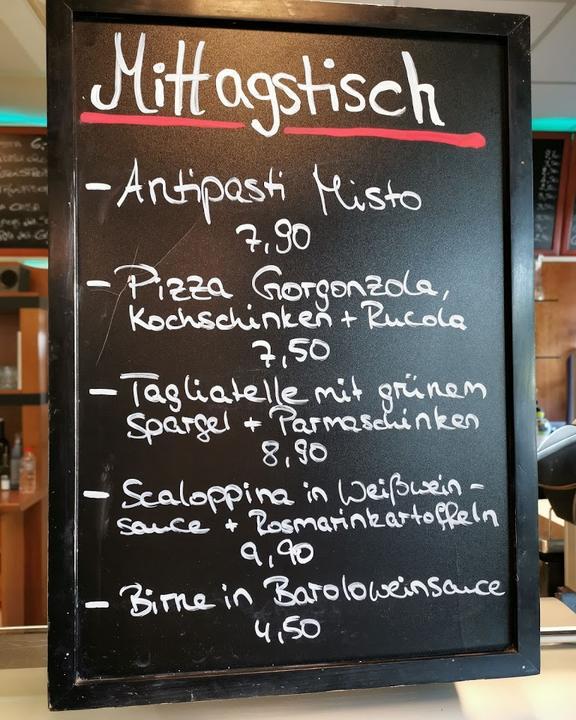 Mittagstisch
- Antipasti Misto
7,90
- Pizza Gorgonzola,
Kochschinken + Rucola
7,50
- Tagliatelle mit grünem
Spargel + Parmaschinken
8,90
- Scaloppina in Weißwein-
sauce + Rosmarinkartoffeln
9,90
- Birne in Baroloweinsauce
4,50